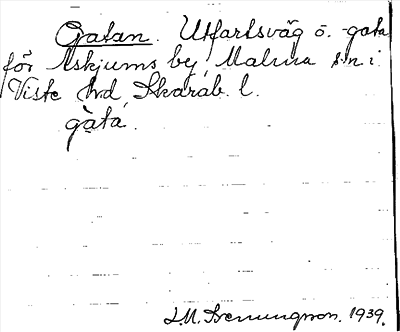 Gatan. Utfartsväg o. -gata
för Askjums by, Malma sn. i
Viste hd, Skarab. l.
gàtá.
1939.